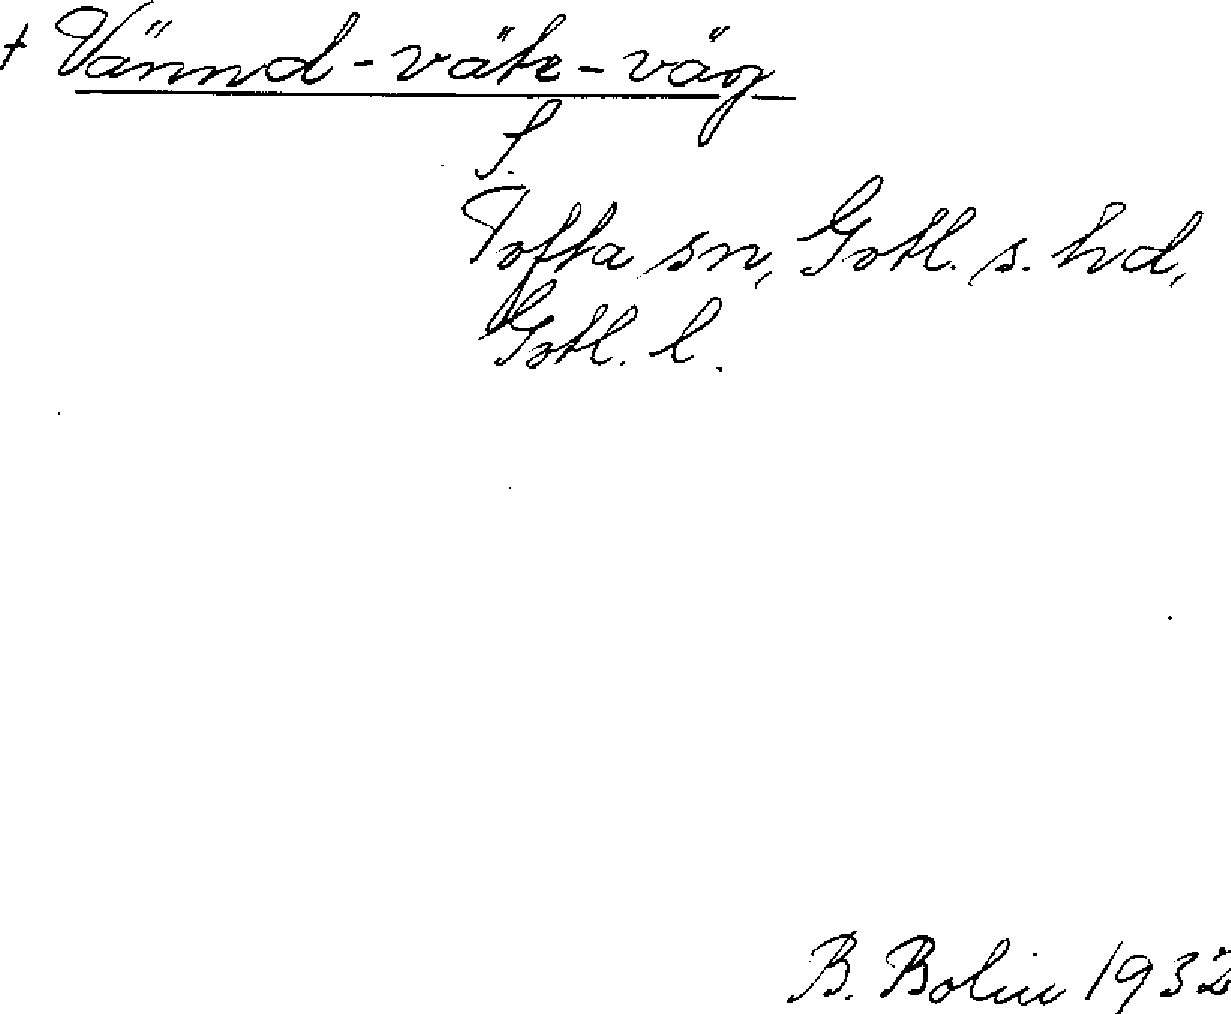 + Vännd-väte-väg
f.
Tofta sn, Gotl. s. hd,
Gotl. l.
B. Bolin 1932